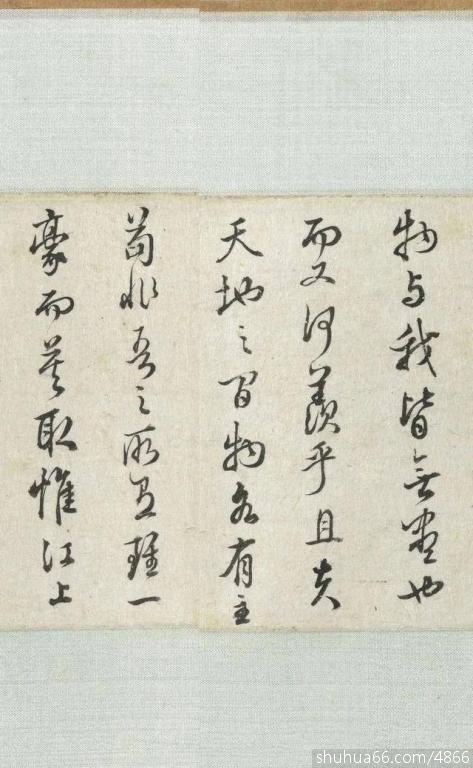 物与我皆無盡也
而又何羨乎且夫
天地之間物各有主
苟非吾之所有雖一
豪而莫取惟江上
shuhua66.com/4866